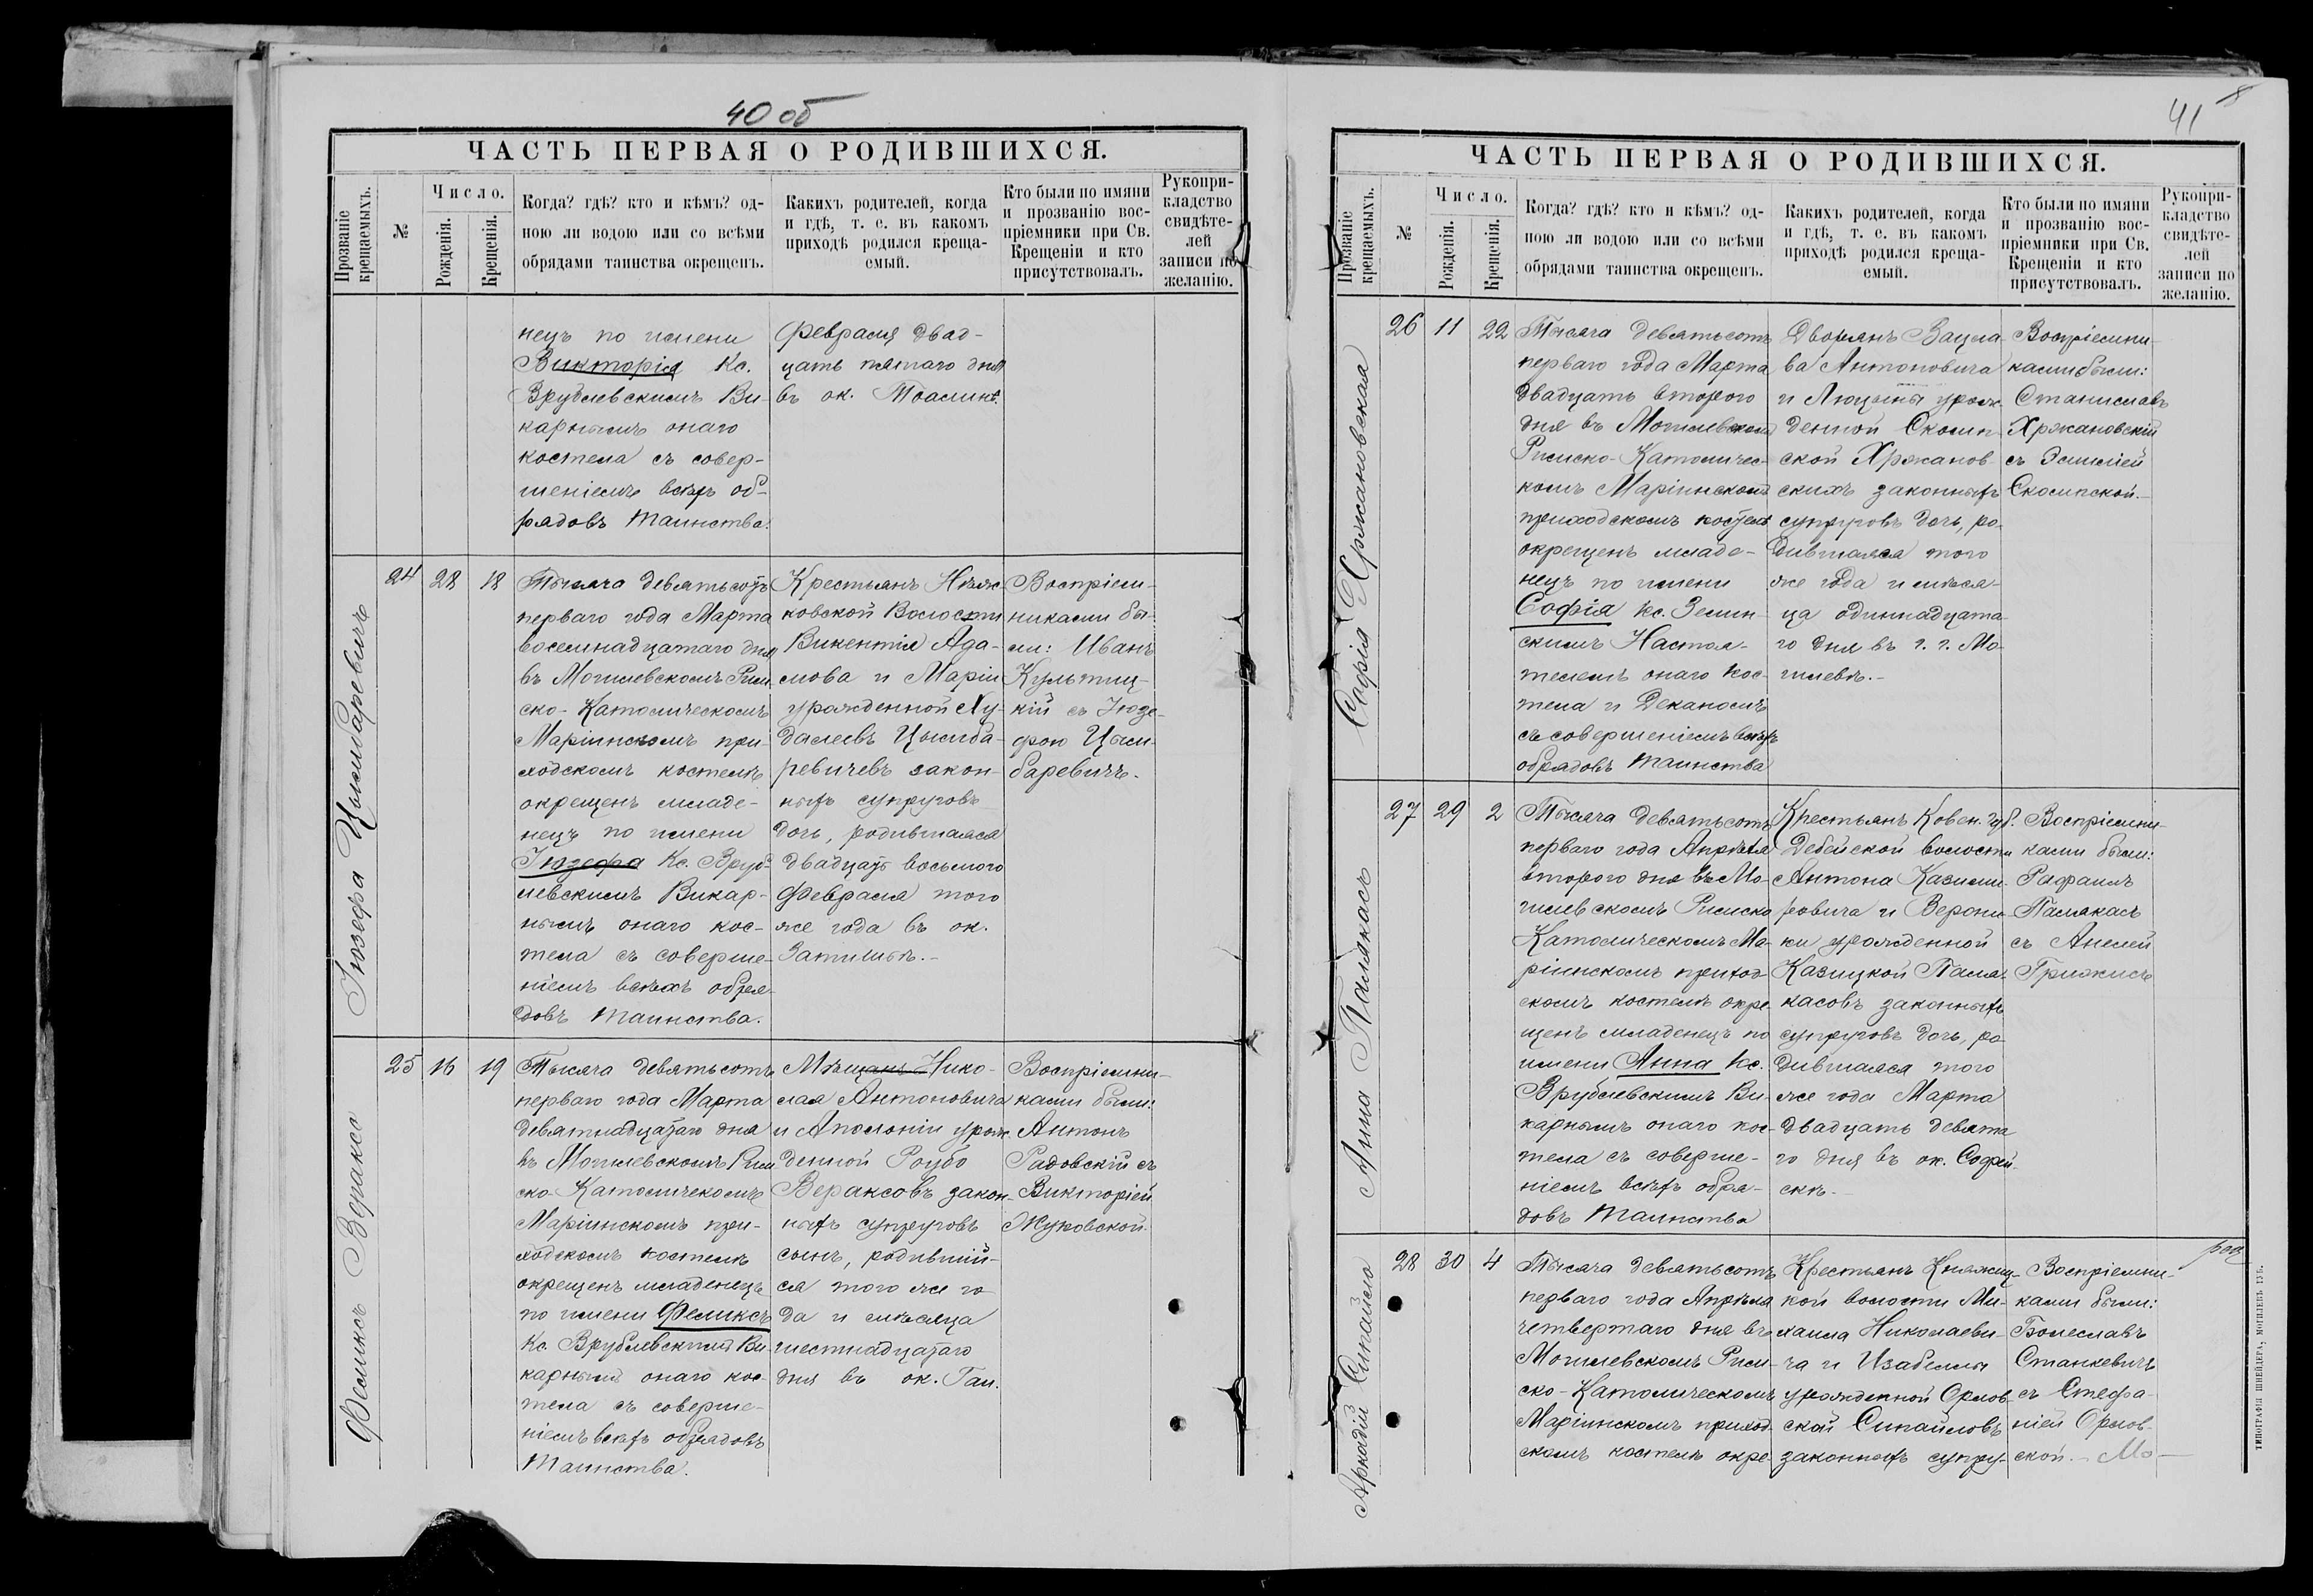 40 об
ЧАСТЬ ПЕРВАЯ О РОДИВШИХСЯ.
Прозваніе крещаемыхъ.
№
Число.
Рожденія.
Крещенія.
Когда? гдѣ? кто и кѣмъ? од-
ною ли водою или со всѣми
обрядами таинства окрещенъ.
Какихъ родителей, когда
и гдѣ, т. е. въ какомъ
приходѣ родился креща-
емый.
Кто были по имяни
и прозванію вос-
пріемники при Св.
Крещеніи и кто
присутствовалъ.
Рукопри-
кладство
свидѣте-
лей
записи по
желанію.
нецъ по имени
Викторія Кс.
Врублевскимъ Ви-
карнымъ онаго
костела съ совер-
шеніемъ всѣхъ об-
рядовъ таинства.
Февраля двад-
цать пятаго дня
въ ок.
Іозефа Цымбаревичъ
24 28 18
Тысяча девятьсотъ
перваго года Марта
восемнадцатаго дня
въ Могилевскомъ Рим-
ско-Католическомъ
Маріинскомъ при-
ходскомъ костелѣ
окрещенъ младе-
нецъ по имени
Іозефа Кс. Вруб-
левскимъ Викар-
нымъ онаго кос-
тела съ соверше-
ніемъ всѣхъ обря-
довъ таинства.
Крестьянъ Няж-
ковской Волости
Викентія Ада-
мова и Маріи
урожденной Ху-
далеевъ Цымба-
ревичевъ закон-
ныхъ супруговъ
дочь, родившаяся
двадцать восьмого
Февраля того
же года въ ок.
Затишьѣ.-
Воспріем-
никами бы-
ли: Иванъ
Культиц-
кій съ Іозе-
фою Цым-
баревичъ.
Феликсъ Веракса
25 16 19
Тысяча девятьсотъ
перваго года Марта
девятнадцатаго дня
въ Могилевскомъ Рим
ско-Католичекомъ
Маріинскомъ при-
ходскомъ костелѣ
окрещенъ младенецъ
по имени Феликсъ
Кс. Врублевскимъ Ви-
карнымъ онаго кос-
тела съ соверше-
ніемъ всѣхъ обрядовъ
таинства.
Мѣщанъ Нико-
лая Антоновича
и Аполоніи урож-
денной Роубо
Вераксовъ закон-
ныхъ супруговъ
сынъ, родившій-
ся того же го
да и мѣсяца
шестнадцатаго
дня въ ок. Гаи.
Воспріемни-
ками были:
Антонъ
Радовскій съ
Викторіей
Жуковской.
41
ЧАСТЬ ПЕРВАЯ О РОДИВШИХСЯ.
Прозваніе крещаемыхъ.
№
Число.
Рожденія.
Крещенія.
Когда? гдѣ? кто и кѣмъ? од-
ною ли водою или со всѣми
обрядами таинства окрещенъ.
Какихъ родителей, когда
и гдѣ, т. е. въ какомъ
приходѣ родился креща-
емый.
Кто были по имяни
и прозванію вос-
пріемники при Св.
Крещеніи и кто
присутствовалъ.
Рукопри-
кладство
свидѣте-
лей
записи по
желанію.
Софія Хржановская
26 11 22
Тысяча девятьсотъ
перваго года Марта
двадцать второго
дня въ Могилевскомъ
Римско-Католичес-
комъ Маріинскомъ
приходскомъ костелѣ
окрещенъ младе-
нецъ по имени
Софія Кс. Земин-
скимъ Настоя-
телемъ онаго кос-
тела и Деканомъ
съ совершеніемъ всѣхъ
обрядовъ таинства
Дворянъ Вацла-
ва Антоновича
и Люцыны урож-
денной Скомп-
ской Хржанов-
скихъ законныхъ
супруговъ дочь, ро-
дившаяся того
же года и мѣся-
ца одиннадцата-
го дня въ г. г. Мо-
гилевѣ.-
Воспріемни-
ками были:
Станиславъ
Хржановскій
съ Эмиліей
Скомпской.-
Анна Палякасъ
27 29 2
Тысяча девятьсотъ
перваго года Апрѣля
второго дня въ Мо-
гилевскомъ Римско
Католическомъ Ма-
ріинскомъ приход-
скомъ костелѣ окре-
щенъ младенецъ по
имени Анна Кс.
Врублевскимъ Ви-
карнымъ онаго кос-
тела съ соверше-
ніемъ всѣхъ обря-
довъ таинства
Крестьянъ Ковен. губ.
Дебейской волости
Антона Казими-
ровича и Верони-
ки урожденной
Казицкой Паля-
касовъ законныхъ
супруговъ дочь, ро-
дившаяся того
же года Марта
двадцать девята
го дня въ ок. Софей-
скѣ.-
Воспріемни-
ками были:
Рафаилъ
Палякасъ
съ Анелей
Грижисъ
Аркадій Сипайло
28 30 4
Тысяча девятьсотъ
перваго года Апрѣля
четвертаго дня въ
Могилевскомъ Рим-
ско-Католическомъ
Маріинскомъ приход-
скомъ костелѣ окре-
Крестьянъ Княжиц-
кой волости Ми-
хаила Николаеви-
ча и Изабеллы
урожденной Орлов-
ской Сипайловъ
законныхъ супру-
Воспріемни-
ками были:
Болеславъ
Станкевичъ
съ Стефа-
ніей Орлов-
ской.- Мо-
ТИПОГРАФІЯ ШНЕЙДЕРА, МОГИЛЕВЪ ГУБ.